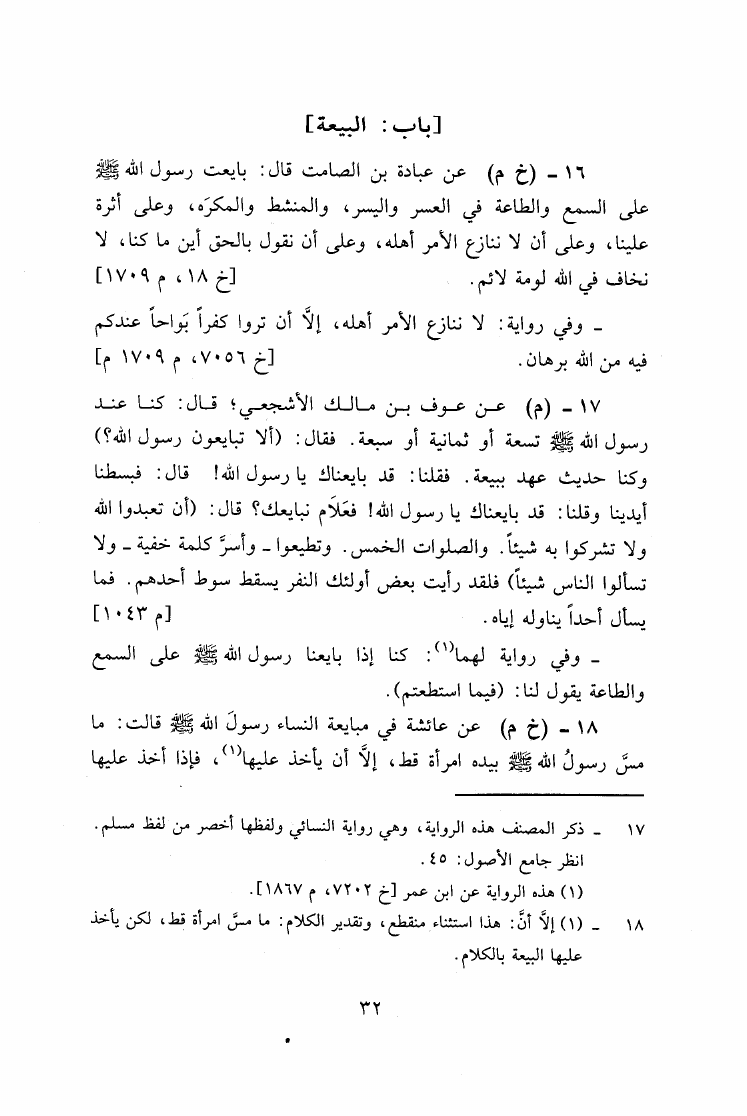 [باب: البيعة]
١٦ - (خ م) عن عبادة بن الصامت قال: بايعت رسول الله ﷺ
على السمع والطاعة في العسر واليسر، والمنشط والمكرَه، وعلى أثرة
علينا، وعلى أن لا ننازع الأمر أهله، وعلى أن نقول بالحق أين ما كنا، لا
نخاف في الله لومة لائم. [خ ١٨، م ١٧٠٩]
- وفي رواية: لا ننازع الأمر أهله، إلاَّ أن تروا كفراً بَواحاً عندكم
فيه من الله برهان. [خ ٧٠٥٦، م ١٧٠٩ م]
١٧ - (م) عن عوف بن مالك الأشجعي؛ قال: كنا عند
رسول الله ﷺ تسعة أو ثمانية أو سبعة. فقال: (ألا تبايعون رسول الله؟)
وكنا حديث عهد ببيعة. فقلنا: قد بايعناك يا رسول الله! قال: فبسطنا
أيدينا وقلنا: قد بايعناك يا رسول الله! فعَلَام نبايعك؟ قال: (أن تعبدوا الله
ولا تشركوا به شيئاً. والصلوات الخمس. وتطيعوا - وأسرَّ كلمة خفية - ولا
تسألوا الناس شيئاً) فلقد رأيت بعض أولئك النفر يسقط سوط أحدهم. فما
يسأل أحداً يناوله إياه. [م ١٠٤٣]
- وفي رواية لهما(١): كنا إذا بايعنا رسول الله ﷺ على السمع
والطاعة يقول لنا: (فيما استطعتم).
١٨ - (خ م) عن عائشة في مبايعة النساء رسولَ الله ﷺ قالت: ما
مسَّ رسولُ الله ﷺ بيده امرأة قط، إلاَّ أن يأخذ عليها(١)، فإذا أخذ عليها
١٧ - ذكر المصنف هذه الرواية، وهي رواية النسائي ولفظها أخصر من لفظ مسلم.
انظر جامع الأصول: ٤٥.
(١) هذه الرواية عن ابن عمر [خ ٧٢٠٢، م ١٨٦٧].
١٨ - (١) إلاَّ أنَّ: هذا استثناء منقطع، وتقدير الكلام: ما مسَّ امرأة قط، لكن يأخذ
عليها البيعة بالكلام.
٣٢